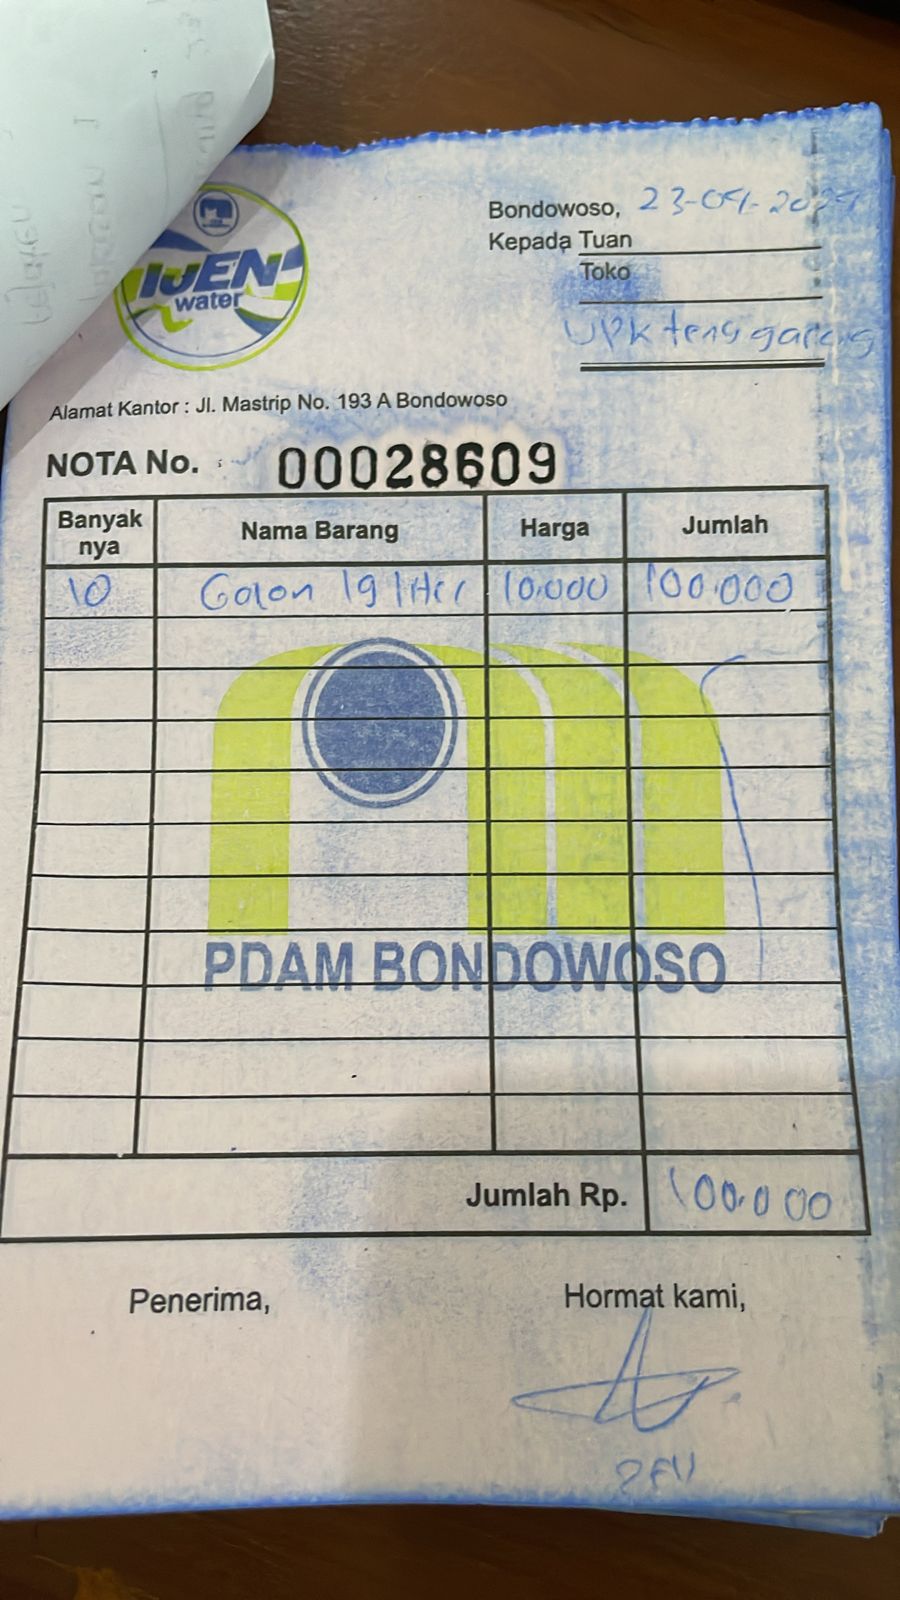 IJEN
water
Bondowoso, 23-04-2024
Kepada Tuan
Toko
UPK tenggarang
Alamat Kantor : Jl. Mastrip No. 193 A Bondowoso
NOTA No. 00028609
Banyak nya Nama Barang Harga Jumlah
10 Galon 19 liter 10.000 100.000
PDAM BONDOWOSO
Jumlah Rp. 100.000
Penerima, Hormat kami,